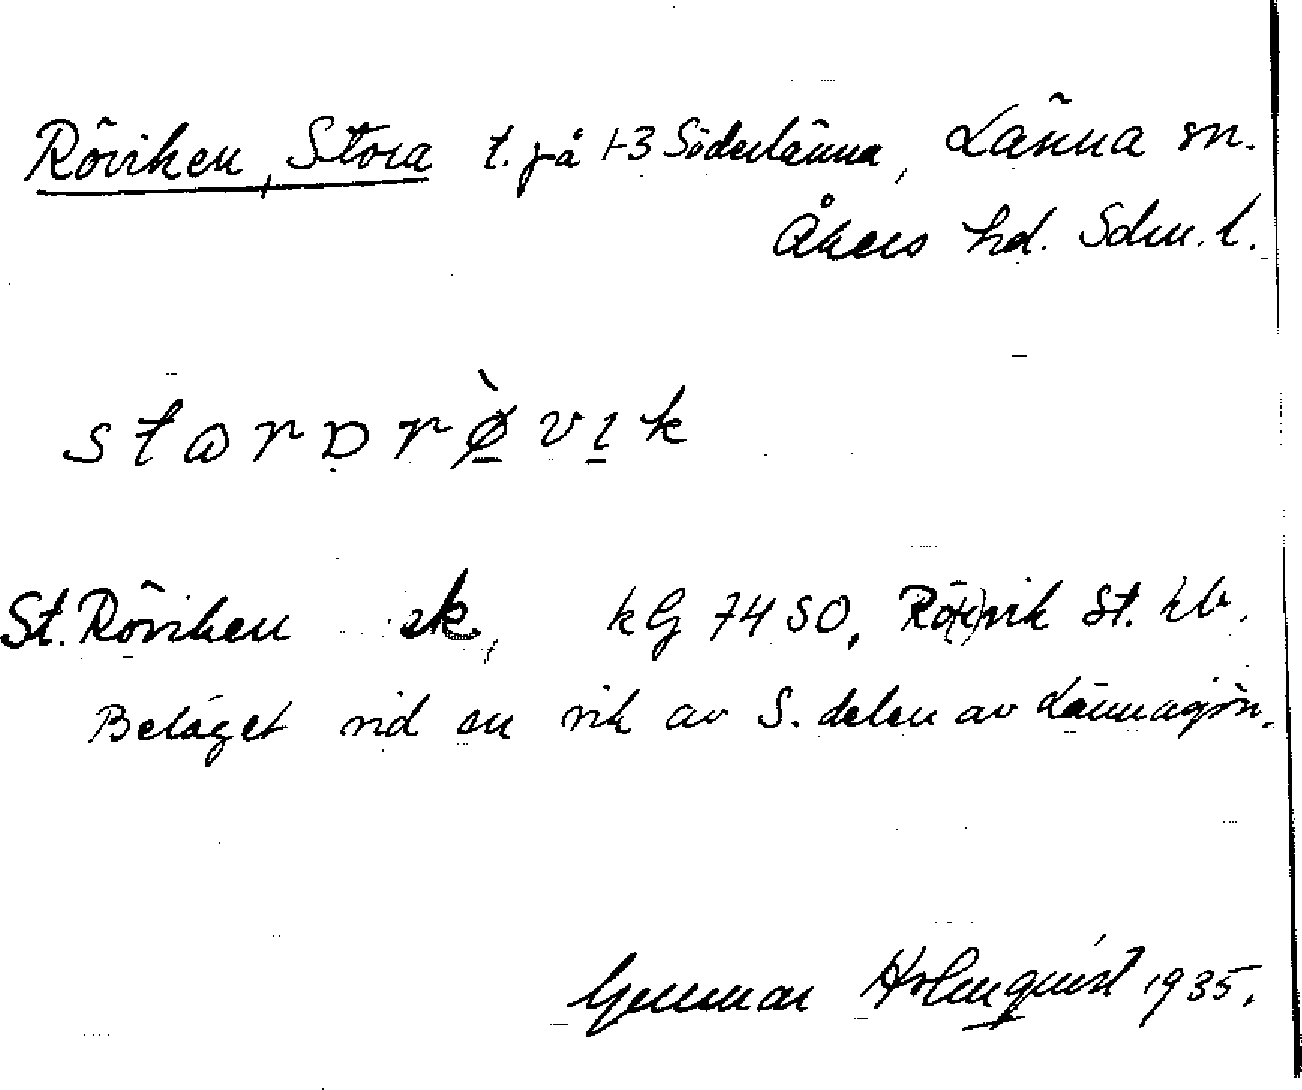 Röviken, Stora t. på 1-3 Söderlänna, Länna sn.
Åkers hd. Sdm. l.
starɒrø̀vɪk
St. Röviken ek, kG 7450, Rö(d)vik St. hb.
Beläget vid en vik av S. delen av Lännasjön.
Gunnar Holmquist 1935.